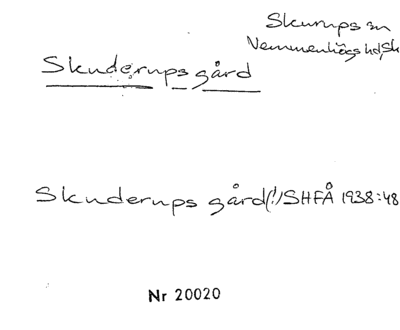 Skurups sn
Vemmenhögs hd, Sk
Skuderups gård
Skuderups gård (!) SHFÅ 1938:48
Nr 20020